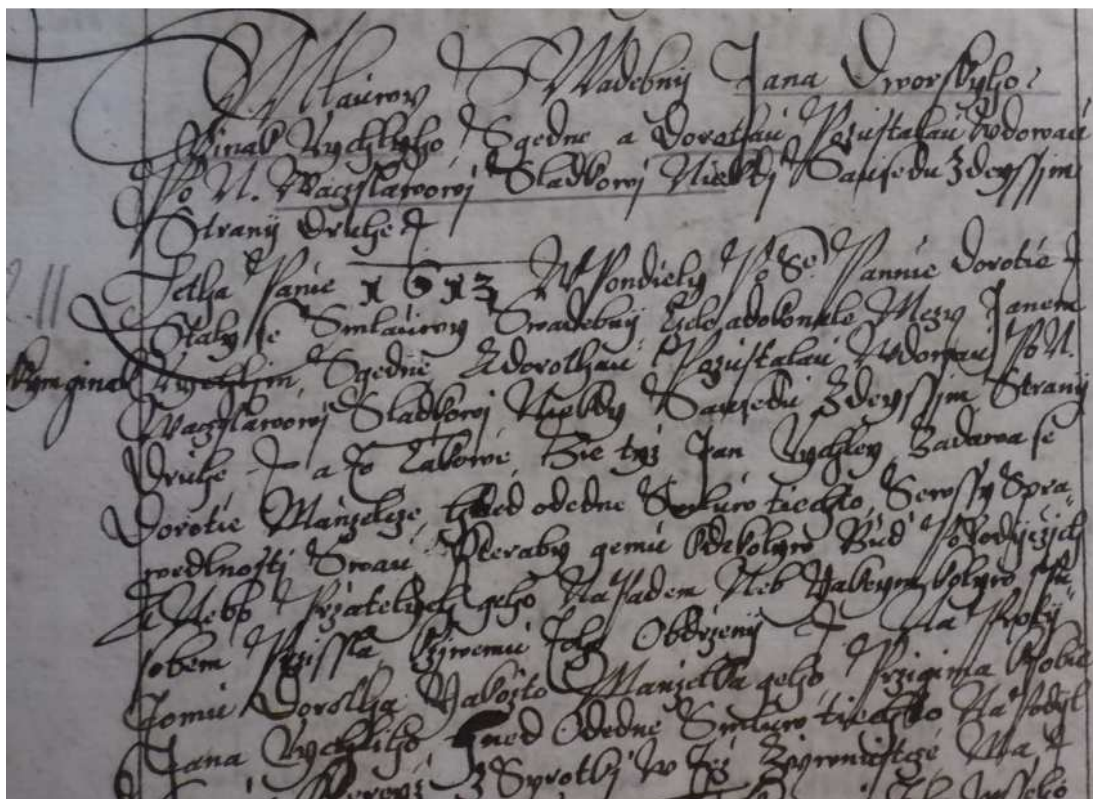 Smlauwy Swadebnij Jana Dworskyho
ginak Rychlyho Sgedne a Dorothau Pozustalau Wdowau
Po N. Waczslawowj Sladkowj Niekdj Sausedu Zdeyssim
Strany Druhe
Letha Panie 1613 W Pondiely Po Se Pannie Dorotie
Staly se Smlauwy Swadebnij Czele a dokonale Mezy Janem
ginak Rychlym Sgedne A Dorothau Pozustalau Wdowau Po N.
Waczslawowj Sladkowj Niekdy Sausedu Zdeyssim Strany
Druhe a to Takowe, Zie tyz Jan Rychley Zadawa se
Dorotie Manzelcze, hned odedne Smluw tiechto, Sewssy Spra
wedlnosti Swau, Kteraby gemu kdekolyw Bud Po Rodicziych
A Nebo Przateliych geho Napadem Neb Yakymkolyw zpu
sobem Przissla k giwemu Toho Obdrzenij Na Proty
Tomu Dorotha Yakozto Manzelka geho Przigima k sobie
Jana Rychliho hned Odedne Smluw tiechto Na Podyl
Z Syrotkj w Tez Ziwnostcze Ma